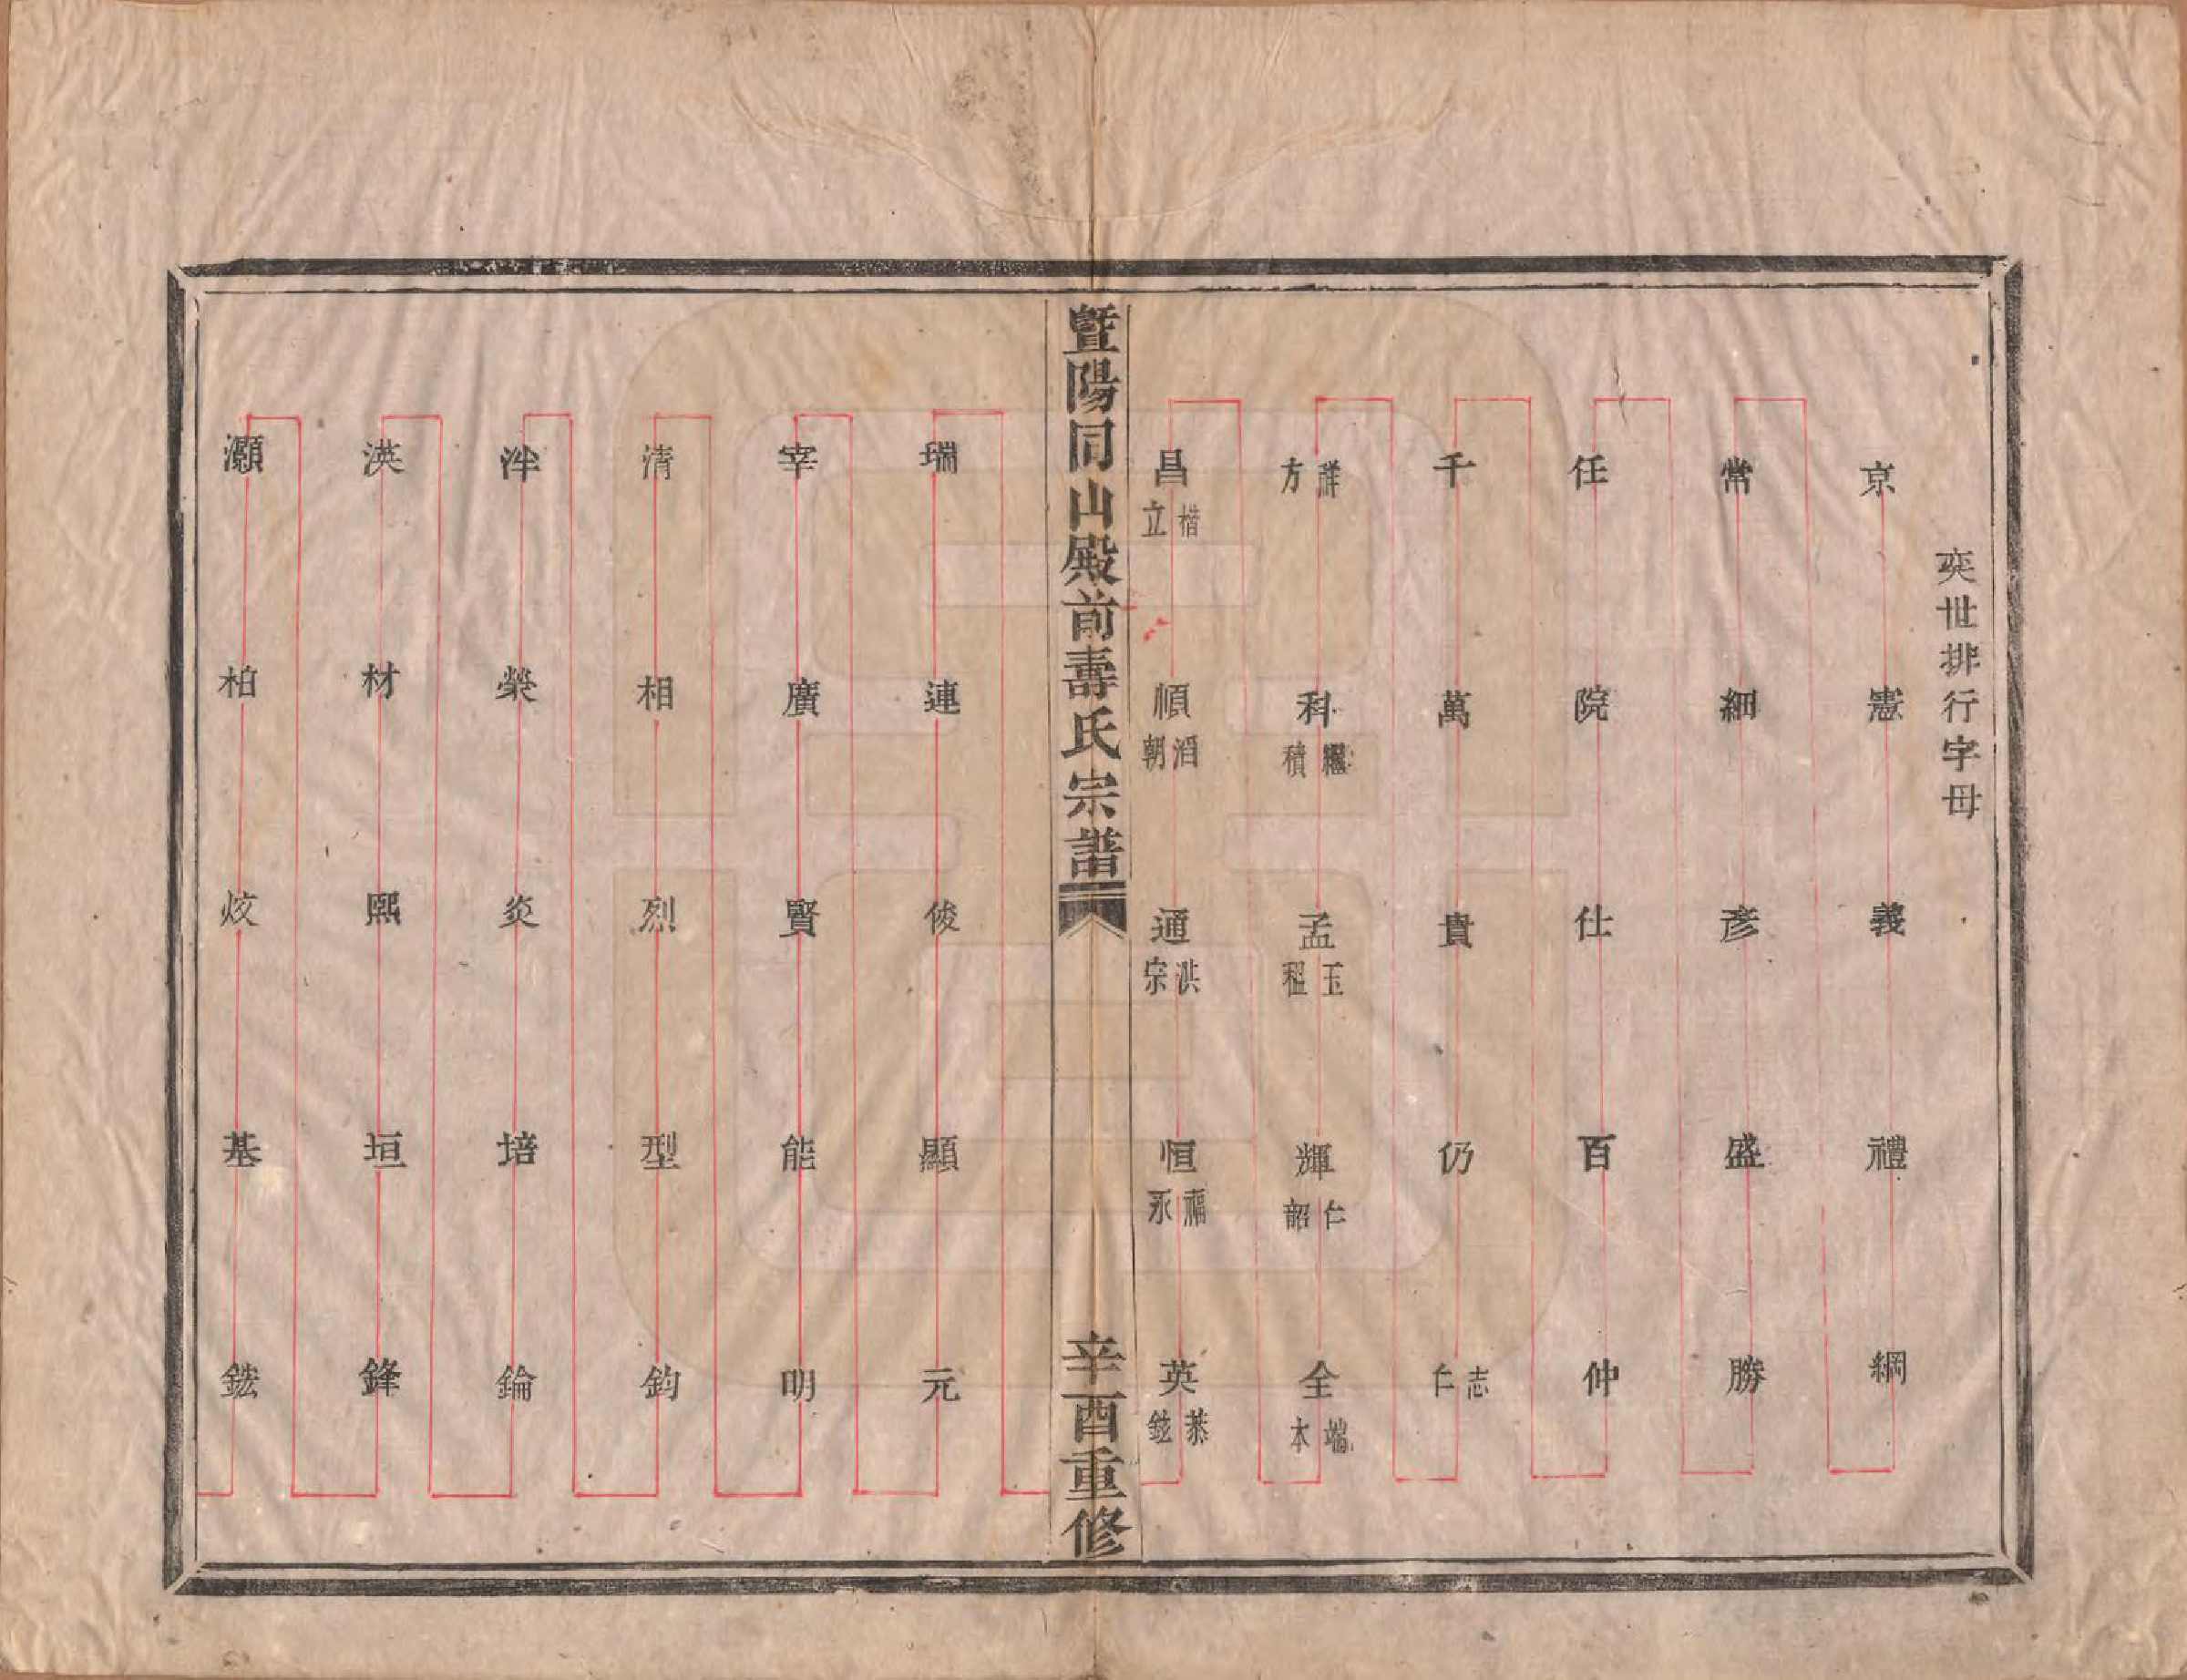 奕世排行字母
京憲義禮綱
常細彥盛勝
任院仕百仲
千萬貴仍志仁
祥方科繼積孟玉租輝仁韶全端本
昌楷立順滔朝通洪宗恒福永英恭鉉
暨陽同山殿前壽氏宗譜
辛酉重修
瑞連俊顯元
宰廣賢能明
清相烈型鈞
泮榮炎培錀
渶材熙垣鋒
灝柏炆基鋐